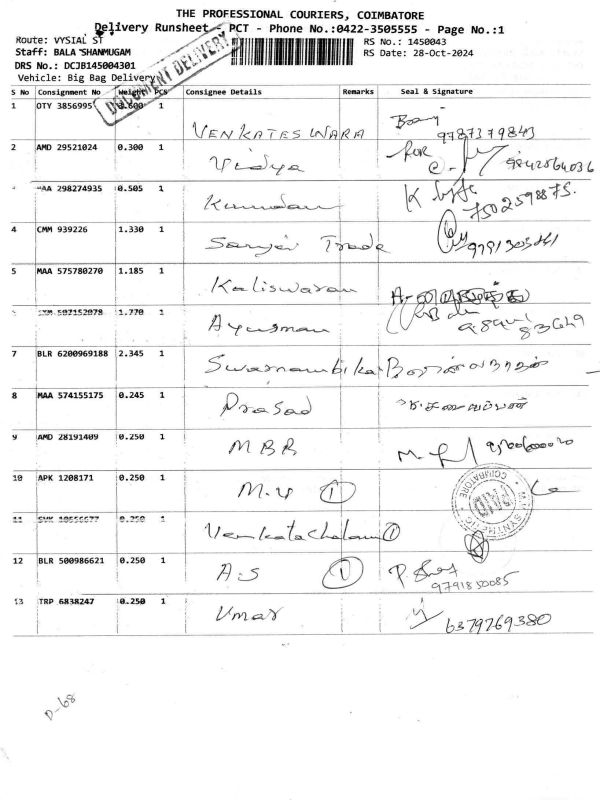 THE PROFESSIONAL COURIERS, COIMBATORE
Delivery Runsheet - PCT - Phone No.:0422-3505555 - Page No.:1
Route: VYSIAL ST
RS No.: 1450043
Staff: BALA SHANMUGAM
RS Date: 28-Oct-2024
DRS No.: DCJB145004301
Vehicle: Big Bag Delivery
DOCUMENT DELIVERY
S No Consignment No Weight PCS Consignee Details Remarks Seal & Signature
1 OTY 3856995 0.600 1 VENKATESWARA 9787379843
2 AMD 29521024 0.300 1 Vidya for 9842564036
MAA 298274935 0.505 1 Kundan 7502598875.
4 CMM 939226 1.330 1 Sanjev Trade
5 MAA 575780270 1.185 1 Kaliswaran
507152078 1.770 1 Ayusman
7 BLR 6200969188 2.345 1 Swarnambikai
8 MAA 574155175 0.245 1 Prasad
9 AMD 28191409 0.250 1 MBR
10 APK 1208171 0.250 1 M.V 1
COIMBATORE
11 0.250 1 Venkatachalam 1
12 BLR 500986621 0.250 1 A.S 1 9791850085
13 TRP 6838247 0.250 1 Umar 6379769380
D-68